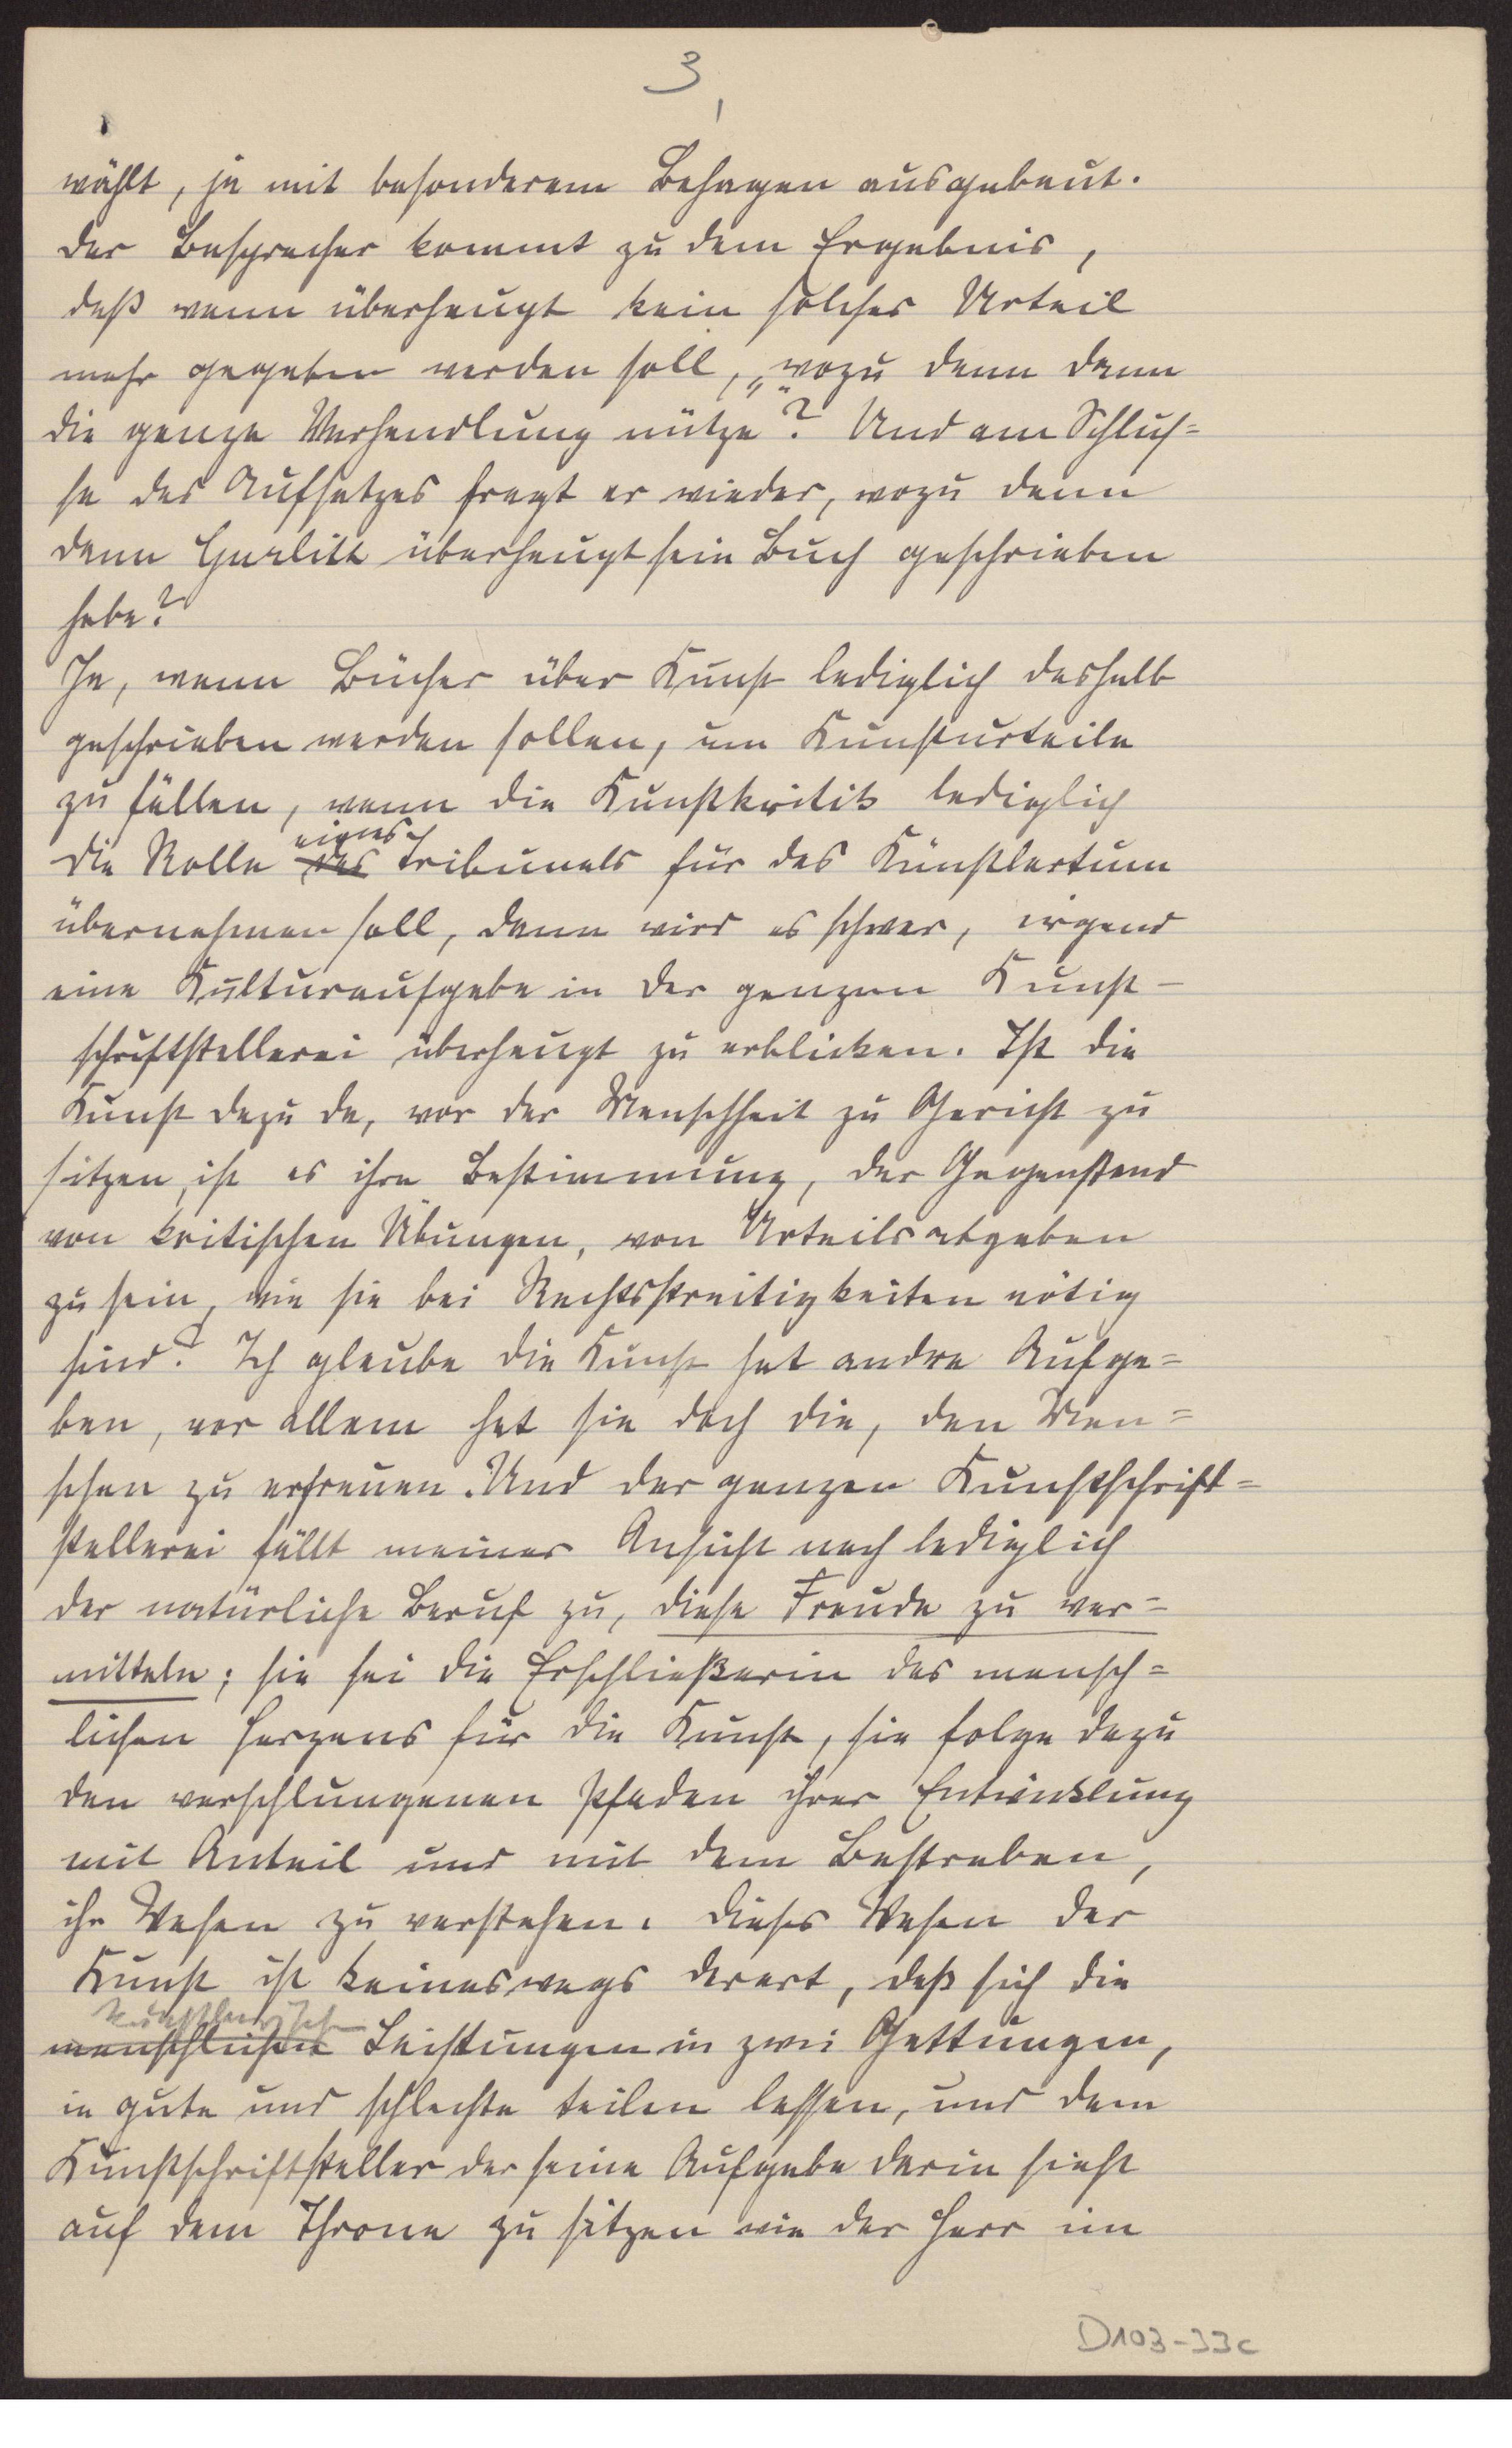 3
wählt, ja mit besonderem Behagen ausgebeut.
Der Besprecher kommt zu dem Ergebnis,
daß wenn überhaupt kein solches Urteil
mehr gegeben werden soll, „wozu denn dann
die ganze Verhandlung nütze“? Und am Schluß=
se des Aufsatzes fragt er wieder, wozu denn
dann Gurlitt überhaupt sein Buch geschrieben
habe?
Ja, wenn Bücher über Kunst lediglich deshalb
geschrieben werden sollen, um Kunsturteile
zu fällen, wenn die Kunstkritik lediglich
eines
die Rolle des Tribunals für das Künstlertum
übernehmen soll, dann wird es schwer, irgend
eine Kulturaufgabe in der ganzen Kunst-
schriftstellerei überhaupt zu erblicken. Ist die
Kunst dazu da, vor der Menschheit zu Gericht zu
sitzen, ist es ihre Bestimmung, der Gegenstand
von kritischen Übungen, von Urteilsabgaben
zu sein, wie sie bei Rechtsstreitigkeiten nötig
sind? Ich glaube die Kunst hat andre Aufga=
ben, vor allem hat sie doch die, den Men=
schen zu erfreuen. Und der ganzen Kunstschrift=
stellerei fällt meiner Ansicht nach lediglich
der natürliche Beruf zu, diese Freude zu ver=
mitteln; sie sei die Erschließerin des mensch=
lichen Herzens für die Kunst, sie folge dazu
den verschlungenen Pfaden ihrer Entwicklung
mit Anteil und mit dem Bestreben,
ihr Wesen zu verstehen. Dieses Wesen der
Kunst ist keineswegs derart, daß sich die
künstlerischen
menschlichen Leistungen in zwei Gattungen,
in gute und schlechte teilen lassen, und dem
Kunstschriftsteller der seine Aufgabe darin sieht
auf dem Throne zu sitzen wie der Herr im
D103-33c